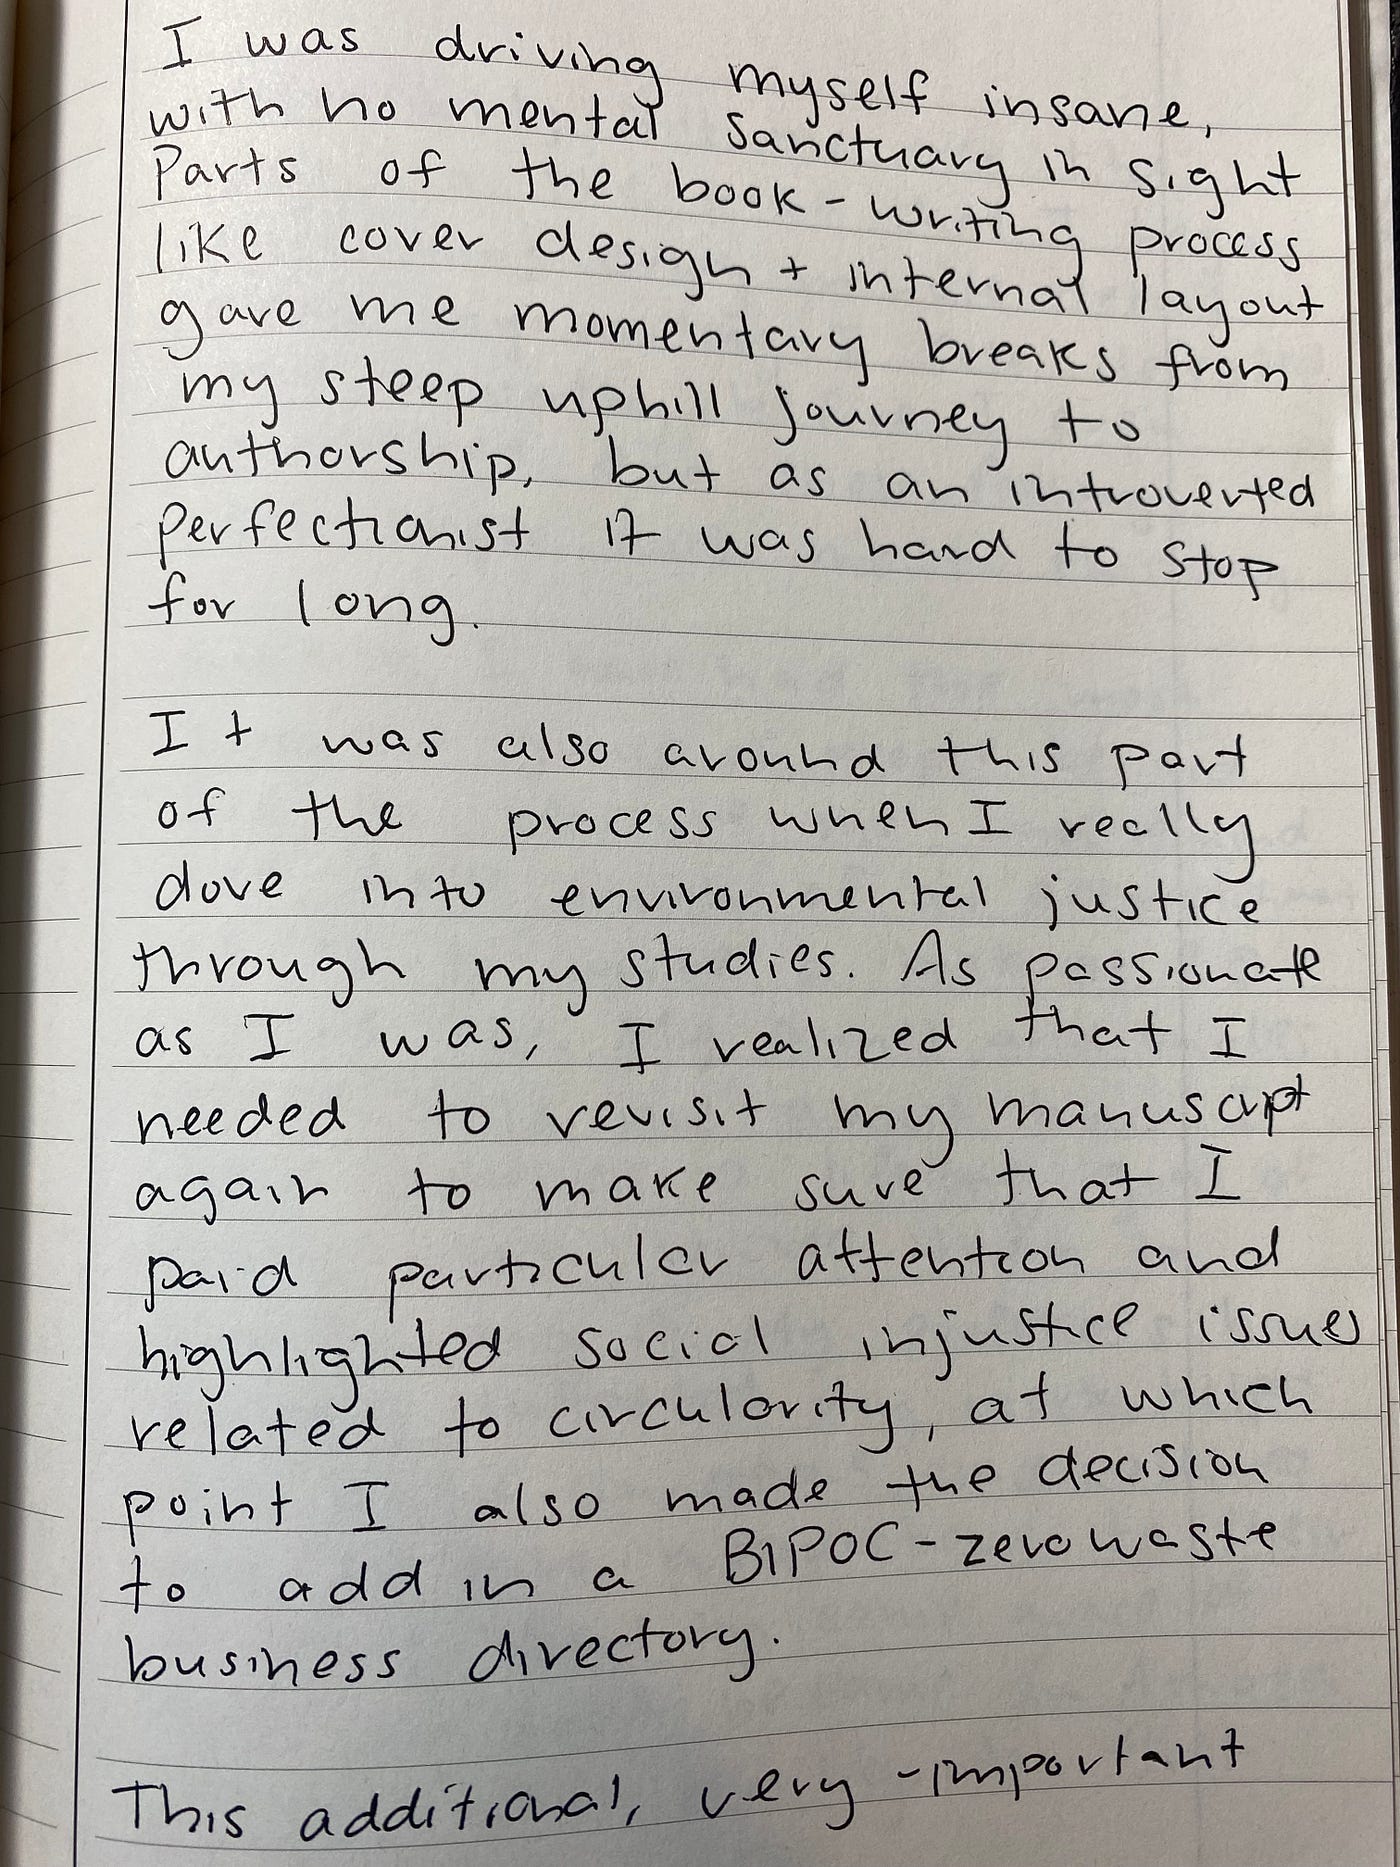 I was driving myself insane,
with no mental sanctuary in sight
Parts of the book-writing process
like cover design + internal layout
gave me momentary breaks from
my steep uphill journey to
authorship, but as an introverted
perfectionist it was hard to stop
for long.
It was also around this part
of the process when I really
dove into environmental justice
through my studies. As passionate
as I was, I realized that I
needed to revisit my manuscript
again to make sure that I
paid particular attention and
highlighted social injustice issues
related to circularity, at which
point I also made the decision
to add in a BIPOC-zero waste
business directory.
This additional, very-important